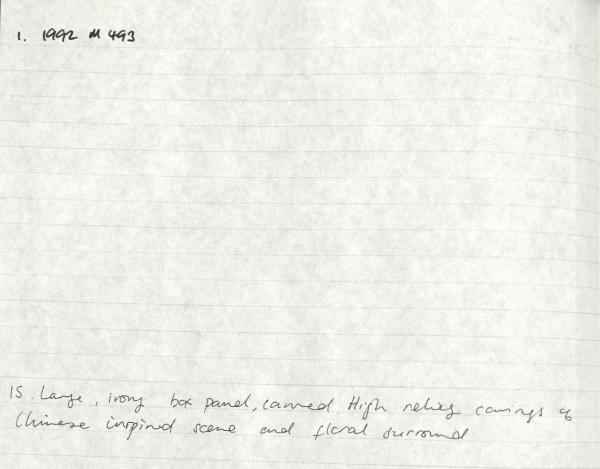 1. 1992 M 493
15. Large, ivory box panel, carved High relief carvings of
Chinese inspired scene and floral surround